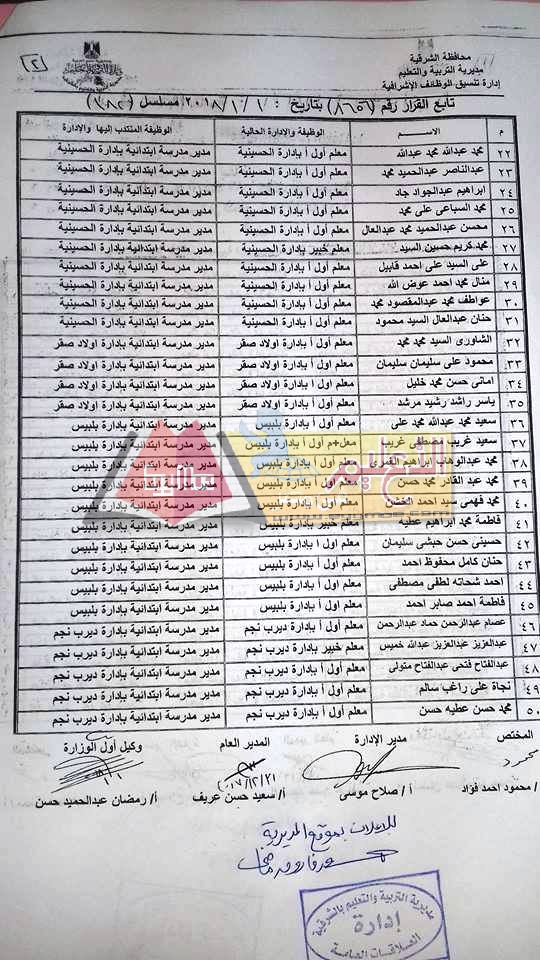 محافظة الشرقية
مديرية التربية والتعليم
إدارة تنسيق الوظائف الإشرافية
(٢)
تابع القرار رقم (٨٦٥٦) بتاريخ : ٢٠١٨/١/١ مسلسل (١٣٨٢)
م الاســم الوظيفة والإدارة الحالية الوظيفة المنتدب إليها والإدارة
٢٢ محمد عبدالله محمد عبدالله معلم أول أ بإدارة الحسينية مدير مدرسة ابتدائية بإدارة الحسينية
٢٣ عبدالناصر عبدالحميد محمد معلم أول أ بإدارة الحسينية مدير مدرسة ابتدائية بإدارة الحسينية
٢٤ ابراهيم عبدالجواد جاد معلم أول أ بإدارة الحسينية مدير مدرسة ابتدائية بإدارة الحسينية
٢٥ محمد السباعى على محمد معلم أول أ بإدارة الحسينية مدير مدرسة ابتدائية بإدارة الحسينية
٢٦ محسن عبدالحميد محمد عبدالعال معلم أول أ بإدارة الحسينية مدير مدرسة ابتدائية بإدارة الحسينية
٢٧ محمد كريم حسين السيد معلم خبير بإدارة الحسينية مدير مدرسة ابتدائية بإدارة الحسينية
٢٨ على السيد على احمد قابيل معلم أول أ بإدارة الحسينية مدير مدرسة ابتدائية بإدارة الحسينية
٢٩ منال محمد احمد عوض الله معلم أول أ بإدارة الحسينية مدير مدرسة ابتدائية بإدارة الحسينية
٣٠ عواطف محمد عبدالمقصود محمد معلم أول أ بإدارة الحسينية مدير مدرسة ابتدائية بإدارة الحسينية
٣١ حنان عبدالعال السيد محمود معلم أول أ بإدارة الحسينية مدير مدرسة ابتدائية بإدارة الحسينية
٣٢ الشاورى السيد محمد محمد معلم أول أ بإدارة اولاد صقر مدير مدرسة ابتدائية بإدارة اولاد صقر
٣٣ محمود على سليمان سليمان معلم أول أ بإدارة اولاد صقر مدير مدرسة ابتدائية بإدارة اولاد صقر
٣٤ امانى حسن محمد خليل معلم أول أ بإدارة اولاد صقر مدير مدرسة ابتدائية بإدارة اولاد صقر
٣٥ ياسر راشد رشيد مرشد معلم أول أ بإدارة اولاد صقر مدير مدرسة ابتدائية بإدارة اولاد صقر
٣٦ سعيد محمد عبدالله محمد على معلم أول أ بإدارة بلبيس مدير مدرسة ابتدائية بإدارة بلبيس
٣٧ سعيد غريب مصطفى غريب معل+م أول أ بإدارة بلبيس مدير مدرسة ابتدائية بإدارة بلبيس
٣٨ محمد عبدالوهاب ابراهيم معلم أول أ بإدارة بلبيس مدير مدرسة ابتدائية بإدارة بلبيس
٣٩ محمد عبد القادر محمد حسن معلم أول أ بإدارة بلبيس مدير مدرسة ابتدائية بإدارة بلبيس
٤٠ محمد فهمى سيد احمد معلم أول أ بإدارة بلبيس مدير مدرسة ابتدائية بإدارة بلبيس
٤١ فاطمة محمد ابراهيم عطيه معلم خبير بإدارة بلبيس مدير مدرسة ابتدائية بإدارة بلبيس
٤٢ حسينى حسن حبشى سليمان معلم أول أ بإدارة بلبيس مدير مدرسة ابتدائية بإدارة بلبيس
٤٣ حنان كامل محفوظ احمد معلم أول أ بإدارة بلبيس مدير مدرسة ابتدائية بإدارة بلبيس
٤٤ احمد شحاته لطفى مصطفى معلم أول أ بإدارة بلبيس مدير مدرسة ابتدائية بإدارة بلبيس
٤٥ فاطمة احمد صابر احمد معلم أول أ بإدارة بلبيس مدير مدرسة ابتدائية بإدارة بلبيس
٤٦ عصام عبدالرحمن حماد عبدالرحمن معلم أول أ بإدارة ديرب نجم مدير مدرسة ابتدائية بإدارة ديرب نجم
٤٧ عبدالعزيز عبدالعزيز عبدالله خميس معلم خبير بإدارة ديرب نجم مدير مدرسة ابتدائية بإدارة ديرب نجم
٤٨ عبدالفتاح فتحى عبدالفتاح متولى معلم أول أ بإدارة ديرب نجم مدير مدرسة ابتدائية بإدارة ديرب نجم
٤٩ نجاة على راغب سالم معلم أول أ بإدارة ديرب نجم مدير مدرسة ابتدائية بإدارة ديرب نجم
٥٠ محمد حسن عطيه حسن معلم أول أ بإدارة ديرب نجم مدير مدرسة ابتدائية بإدارة ديرب نجم
المختص مدير الإدارة المدير العام وكيل أول الوزارة
محمود
٢٠١٧/١٢/٢١
أ/ محمود احمد فؤاد أ/ صلاح موسى أ/ سعيد حسن عريف أ/ رمضان عبدالحميد حسن
للإعلان بموقع المديرية
مديرية التربية والتعليم بالشرقية
إدارة
العلاقات العامة